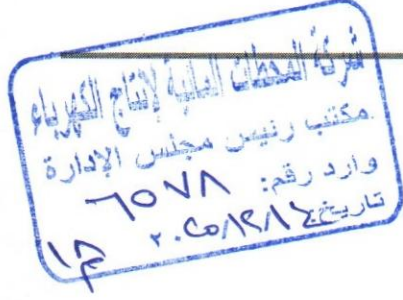 شركة المحطات المائية لإنتاج الكهرباء
مكتب رئيس مجلس الإدارة
وارد رقم: ٦٥٧٨
تاريخ: ٢٠٢٥/١٢/١٤